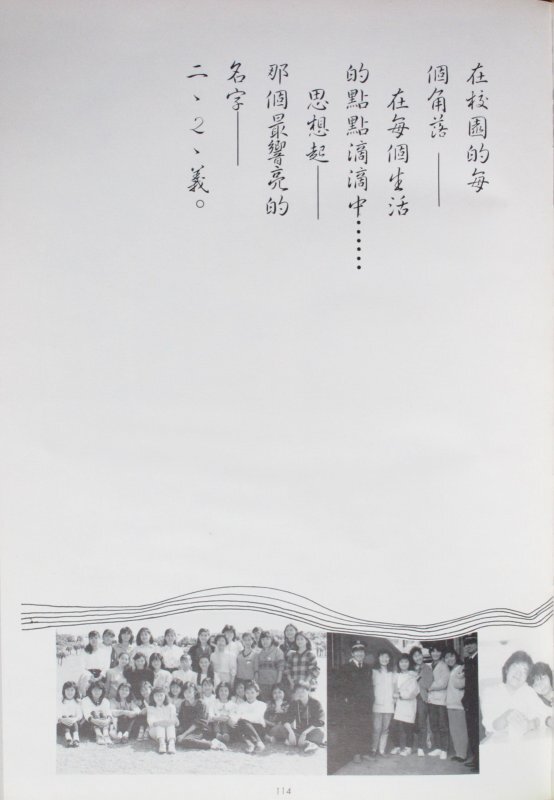 在校園的每
個角落——
在每個生活
的點點滴滴中……
思想起——
那個最響亮的
名字——
二、2、義。
114